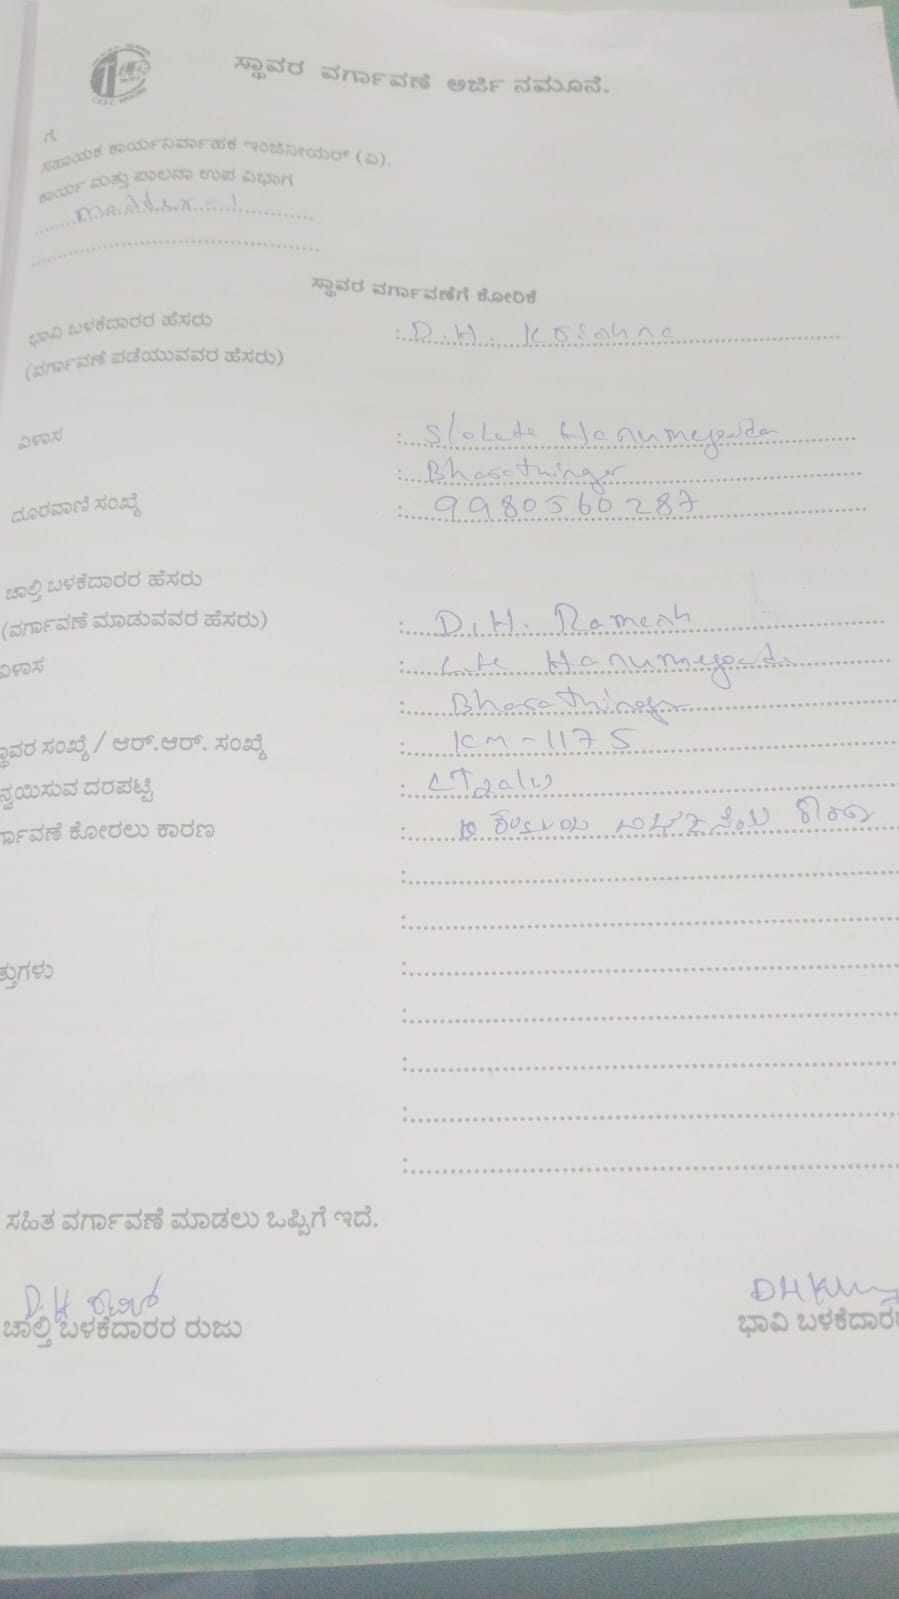 ಸ್ಥಾವರ ವರ್ಗಾವಣೆ ಅರ್ಜಿ ನಮೂನೆ.
ಗೆ,
ಸಹಾಯಕ ಕಾರ್ಯನಿರ್ವಾಹಕ ಇಂಜಿನೀಯರ್ (ವಿ),
ಕಾರ್ಯ ಮತ್ತು ಪಾಲನಾ ಉಪ ವಿಭಾಗ
ಸ್ಥಾವರ ವರ್ಗಾವಣೆಗೆ ಕೋರಿಕೆ
ಭಾವಿ ಬಳಕೆದಾರರ ಹೆಸರು : D.H. Krishna
(ವರ್ಗಾವಣೆ ಪಡೆಯುವವರ ಹೆಸರು)
ವಿಳಾಸ : S/o Late Hanumegowda
: Bharathinagar
ದೂರವಾಣಿ ಸಂಖ್ಯೆ : 9980560287
ಚಾಲ್ತಿ ಬಳಕೆದಾರರ ಹೆಸರು
(ವರ್ಗಾವಣೆ ಮಾಡುವವರ ಹೆಸರು) : D.H. Ramesh
ವಿಳಾಸ : Late Hanumegowda
: Bharathinagar
ಸ್ಥಾವರ ಸಂಖ್ಯೆ / ಆರ್.ಆರ್. ಸಂಖ್ಯೆ : KM-1175
ನ್ವಯಿಸುವ ದರಪಟ್ಟಿ :
ರ್ಗಾವಣೆ ಕೋರಲು ಕಾರಣ :
ತ್ತುಗಳು :
ಸಹಿತ ವರ್ಗಾವಣೆ ಮಾಡಲು ಒಪ್ಪಿಗೆ ಇದೆ.
D.H ರಮೇಶ್ DHK
ಚಾಲ್ತಿ ಬಳಕೆದಾರರ ರುಜು ಭಾವಿ ಬಳಕೆದಾರ